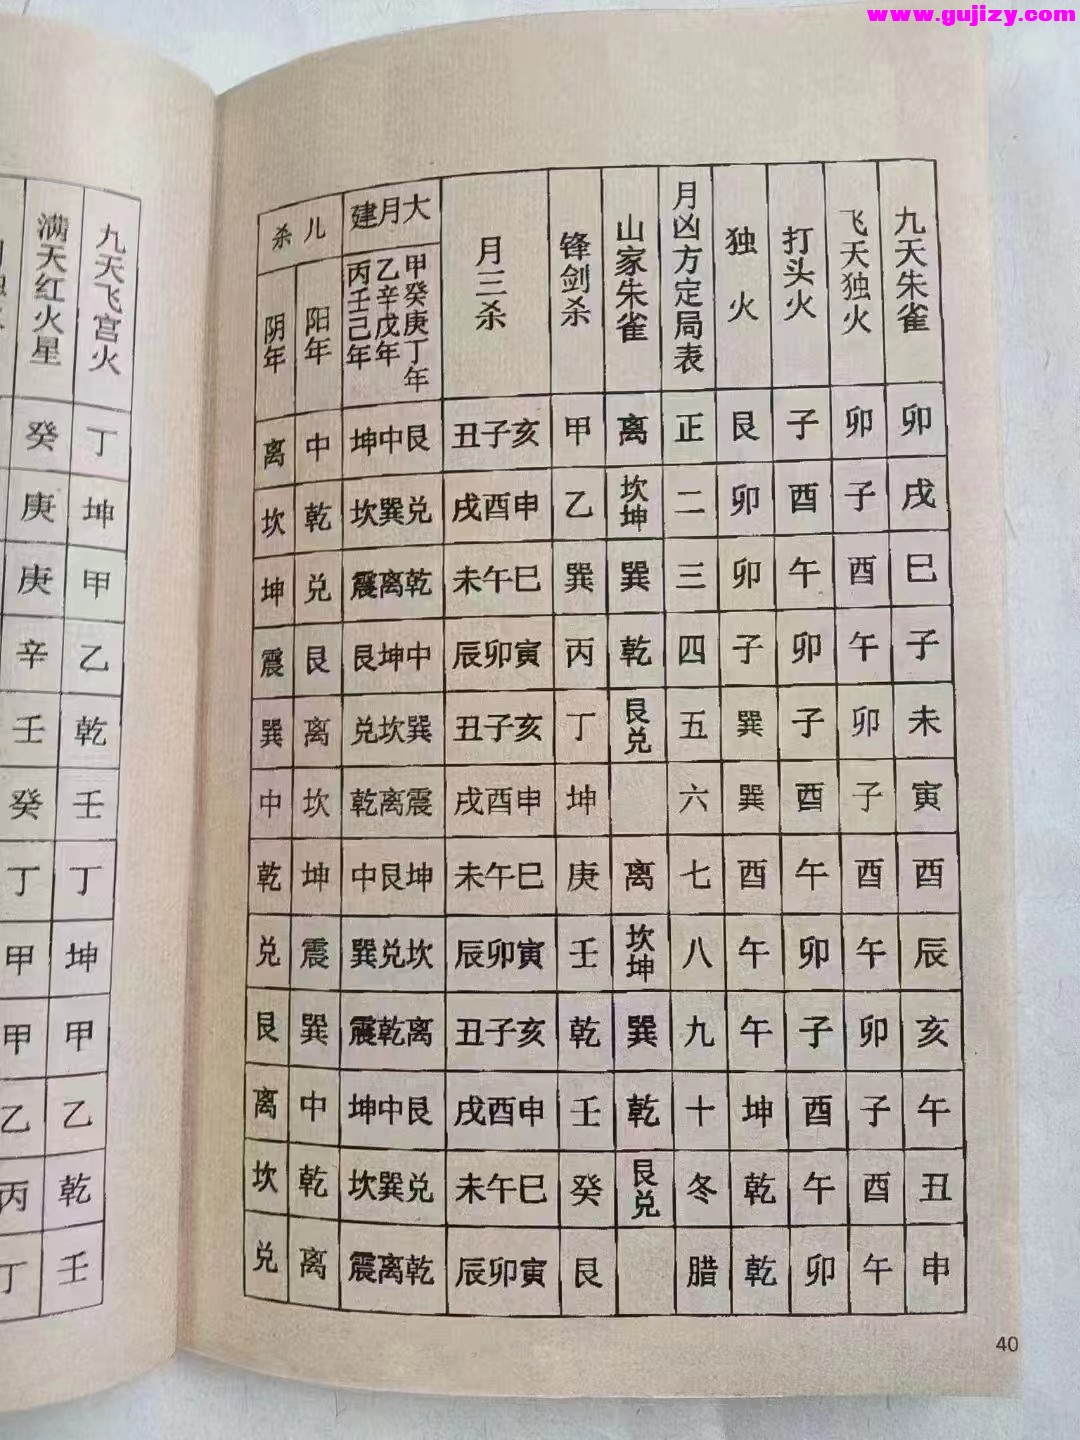 www.gujizy.com
九天朱雀
飞天独火
打头火
独火
月凶方定局表
山家朱雀
锋剑杀
月三杀
大月建
甲癸庚丁年
乙辛戊年
丙壬己年
儿杀
阳年
阴年
卯 卯 子 艮 正 离 甲 亥子丑 艮中坤 中 离
戌 子 酉 卯 二 坎坤 乙 申酉戌 兑巽坎 乾 坎
巳 酉 午 卯 三 巽 巽 巳午未 乾离震 兑 坤
子 午 卯 子 四 乾 丙 寅卯辰 中坤艮 艮 震
未 卯 子 巽 五 艮兑 丁 亥子丑 巽坎兑 离 巽
寅 子 酉 巽 六 坤 申酉戌 震离乾 坎 中
酉 酉 午 酉 七 离 庚 巳午未 坤艮中 坤 乾
辰 午 卯 午 八 坎坤 壬 寅卯辰 坎兑巽 震 兑
亥 卯 子 午 九 巽 乾 亥子丑 离乾震 巽 艮
午 子 酉 坤 十 乾 壬 申酉戌 艮中坤 中 离
丑 酉 午 乾 冬 艮兑 癸 巳午未 兑巽坎 乾 坎
申 午 卯 乾 腊 艮 寅卯辰 乾离震 离 兑
40
九天飞宫火
满天红火星
丁 癸
坤 庚
甲 庚
乙 辛
乾 壬
壬 癸
丁 丁
坤 甲
甲 甲
乙 乙
乾 丙
壬 丁